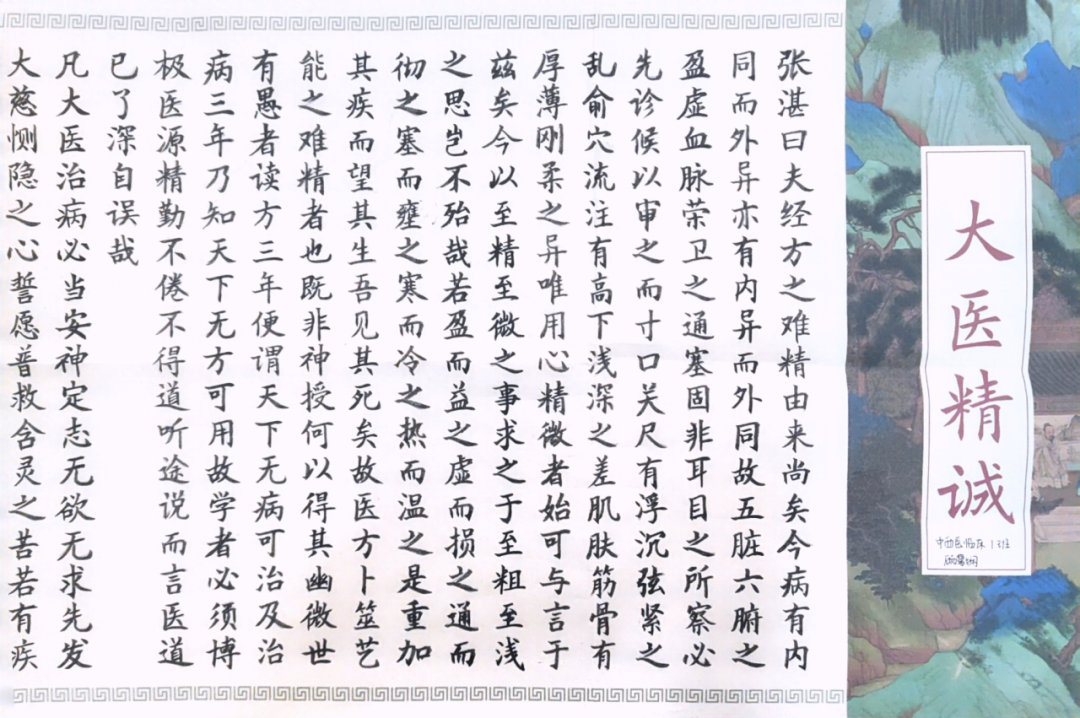 大医精诚
中西医临床13班
张湛曰夫经方之难精由来尚矣今病有内
同而外异亦有内异而外同故五脏六腑之
盈虚血脉荣卫之通塞固非耳目之所察必
先诊候以审之而寸口关尺有浮沉弦紧之
乱俞穴流注有高下浅深之差肌肤筋骨有
厚薄刚柔之异唯用心精微者始可与言于
兹矣今以至精至微之事求之于至粗至浅
之思岂不殆哉若盈而益之虚而损之通而
彻之塞而壅之寒而冷之热而温之是重加
其疾而望其生吾见其死矣故医方卜筮艺
能之难精者也既非神授何以得其幽微世
有愚者读方三年便谓天下无病可治及治
病三年乃知天下无方可用故学者必须博
极医源精勤不倦不得道听途说而言医道
已了深自误哉
凡大医治病必当安神定志无欲无求先发
大慈恻隐之心誓愿普救含灵之苦若有疾